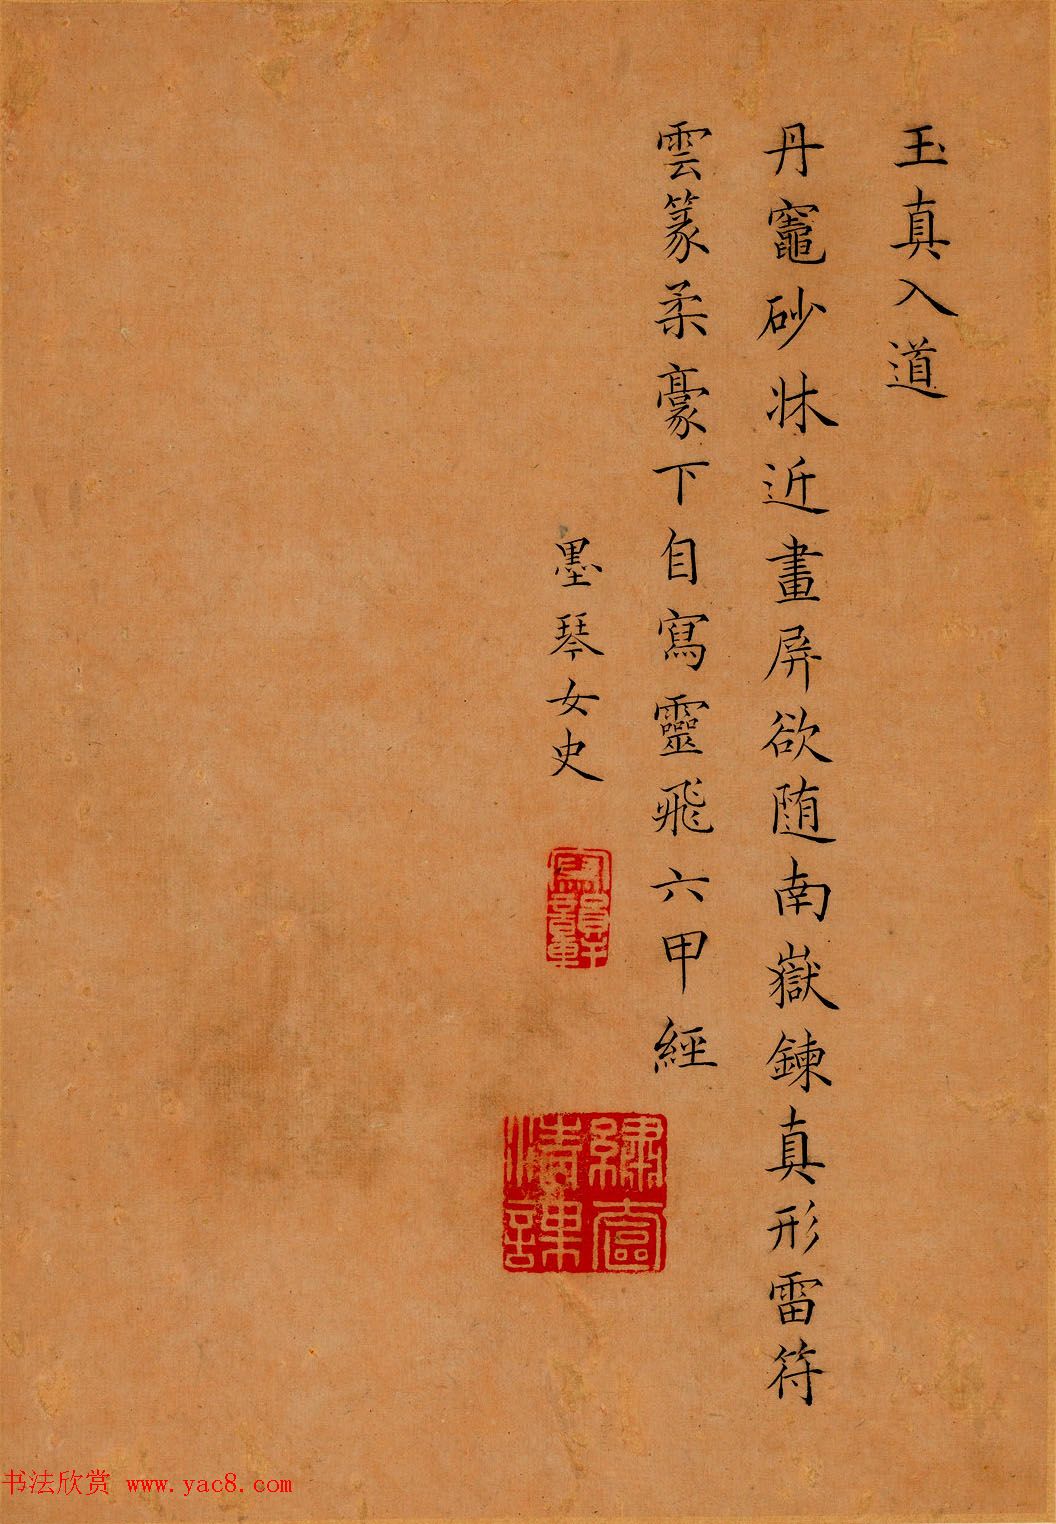 玉真入道
丹竈砂牀近畫屏欲随南嶽鍊真形雷符
雲篆柔豪下自寫靈飛六甲經
墨琴女史
寫韻軒
繡窗清課
书法欣赏 www.yac8.com